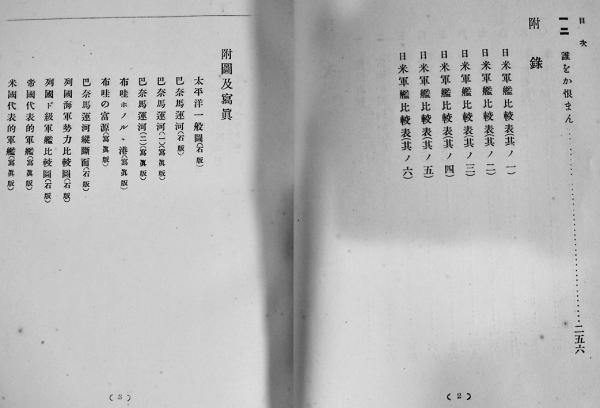 目次
一二 誰をか恨まん……………………二五六
附錄
日米軍艦比較表(其ノ一)
日米軍艦比較表(其ノ二)
日米軍艦比較表(其ノ三)
日米軍艦比較表(其ノ四)
日米軍艦比較表(其ノ五)
日米軍艦比較表(其ノ六)
(2)
附圖及寫眞
太平洋一般圖(石版)
巴奈馬運河(石版)
巴奈馬運河(一)(寫眞版)
巴奈馬運河(二)(寫眞版)
布哇ホノルヽ港(寫眞版)
布哇の富源(寫眞版)
巴奈馬運河縱斷面(石版)
列國海軍勢力比較圖(石版)
列國ド級軍艦比較圖(石版)
帝國代表的軍艦(寫眞版)
米國代表的軍艦(寫眞版)
(3)